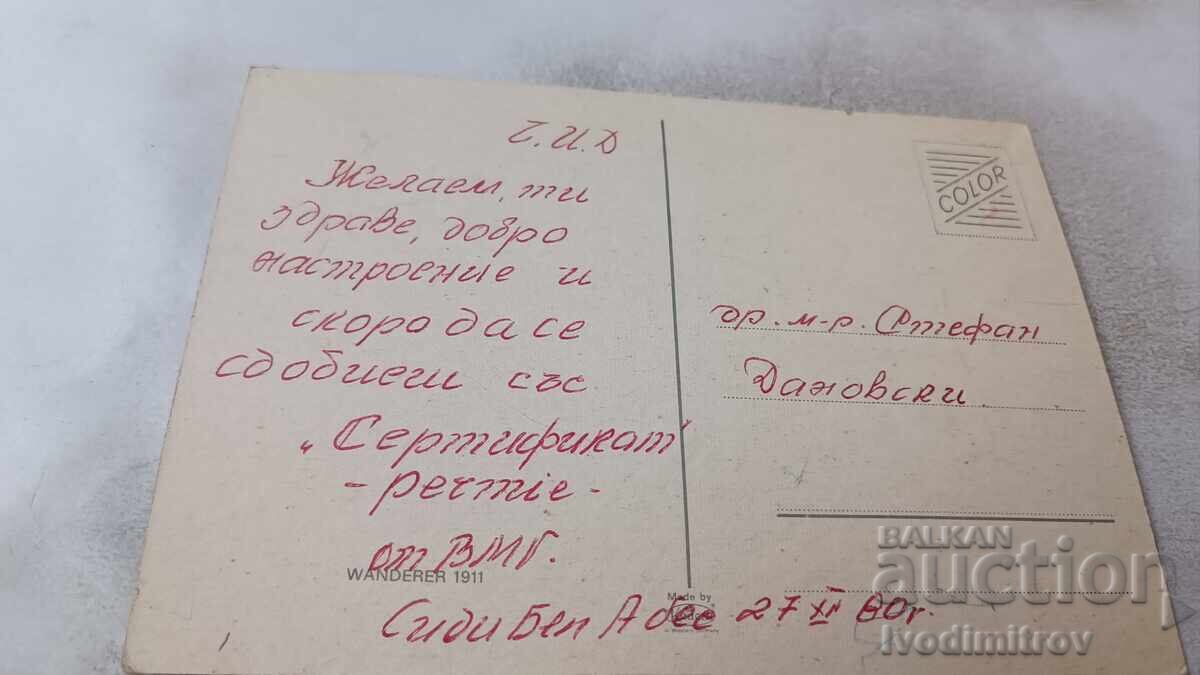 Ч.И.Д
Желаем, ти
здраве, добро
настроение и
скоро да се
сдобиеш със
"Сертификат"
от ВМГ.
WANDERER 1911
Сиди Бел Абес 27 XII 80г.
Made by
COLOR
гр. м-р. Стефан
Дановски.
BALKAN
auction
Ivodimitrov